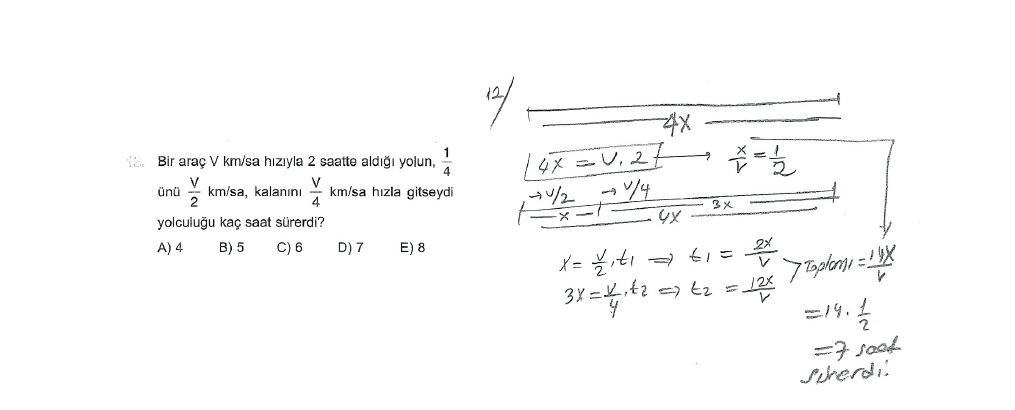 12. Bir araç V km/sa hızıyla 2 saatte aldığı yolun, 1/4
ünü V/2 km/sa, kalanını V/4 km/sa hızla gitseydi
yolculuğu kaç saat sürerdi?
A) 4 B) 5 C) 6 D) 7 E) 8
12/
4x
4x = V.2 → x/V = 1/2
→ V/2 → V/4
x 3x
4x
x = V/2 . t1 ⇒ t1 = 2x/V
3x = V/4 . t2 ⇒ t2 = 12x/V
Toplamı = 14x/V
= 14 . 1/2
= 7 saat
sürerdi.